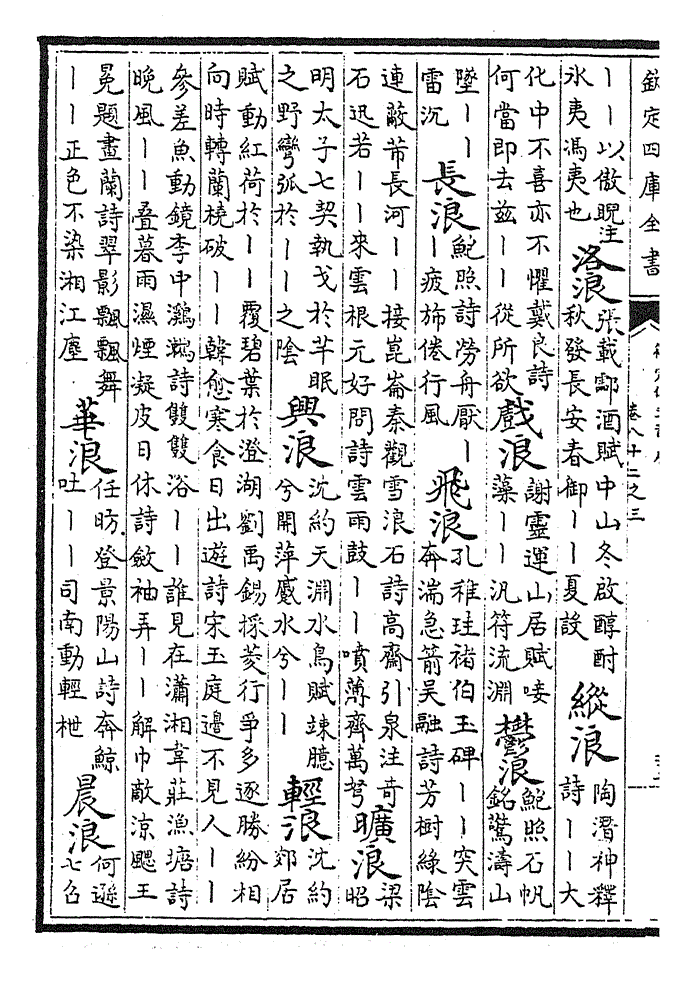 欽定四庫全書
卷八十二之三
——以傲睨注
氷夷馮夷也
洛浪
張載酃酒賦中山冬啟醇酎
秋發長安春御——夏設
縱浪
陶潛神釋
詩——大
化中不喜亦不懼戴良詩
何當即去兹——從所欲
戲浪
謝靈運山居賦唼
藻——汎苻流淵
鬱浪
鮑照石帆
銘驚濤山
墜——
雷沉
長浪
鮑照詩勞舟厭—
—疲斾倦行風
飛浪
孔稚珪禇伯玉碑——突雲
奔湍急箭吳融詩芳樹綠陰
連蔽芾長河——接崑崙秦觀雪浪石詩高齋引泉注奇
石迅若——來雲根元好問詩雲雨鼓——噴薄齊萬弩
曠浪
梁
昭
明太子七契執戈於芊眠
之野彎弧於——之陰
興浪
沈約天淵水鳥賦竦臆
兮開萍蹙水兮——
輕浪
沈約
郊居
賦動紅荷於——覆碧葉於澄湖劉禹錫採菱行爭多逐勝紛相
向時轉蘭橈破——韓愈寒食日出遊詩宋玉庭邊不見人——
參差魚動鏡李中鸂鶒詩雙雙浴——誰見在瀟湘韋莊漁塘詩
晚風——疊暮雨濕煙凝皮日休詩斂袖弄——解巾敵涼颸王
冕題畫蘭詩翠影飄飄舞
——正色不染湘江塵
華浪
任昉登景陽山詩奔鯨
吐——司南動輕枻
晨浪
何遜
七召